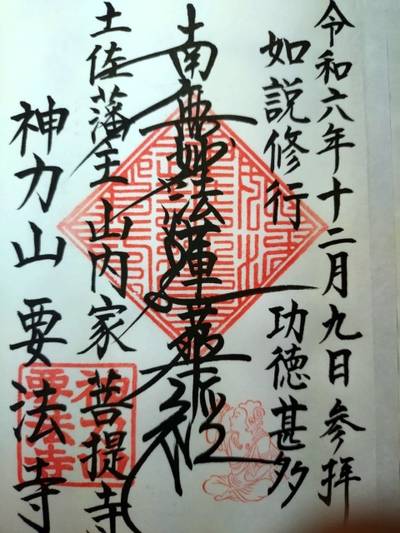 令和六年十二月九日参拝
如説修行 功徳甚多
南無妙法蓮華経
土佐藩主山内家菩提寺
神力山要法寺